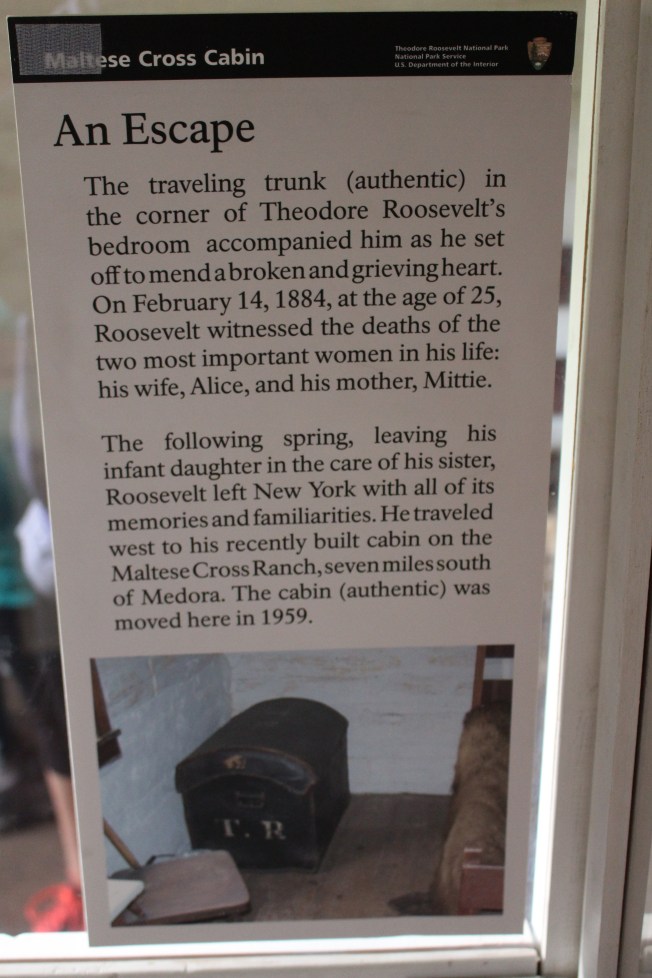 Maltese Cross Cabin
Theodore Roosevelt National Park
National Park Service
U.S. Department of the Interior
An Escape
The traveling trunk (authentic) in
the corner of Theodore Roosevelt's
bedroom accompanied him as he set
off to mend a broken and grieving heart.
On February 14, 1884, at the age of 25,
Roosevelt witnessed the deaths of the
two most important women in his life:
his wife, Alice, and his mother, Mittie.
The following spring, leaving his
infant daughter in the care of his sister,
Roosevelt left New York with all of its
memories and familiarities. He traveled
west to his recently built cabin on the
Maltese Cross Ranch, seven miles south
of Medora. The cabin (authentic) was
moved here in 1959.
T. R